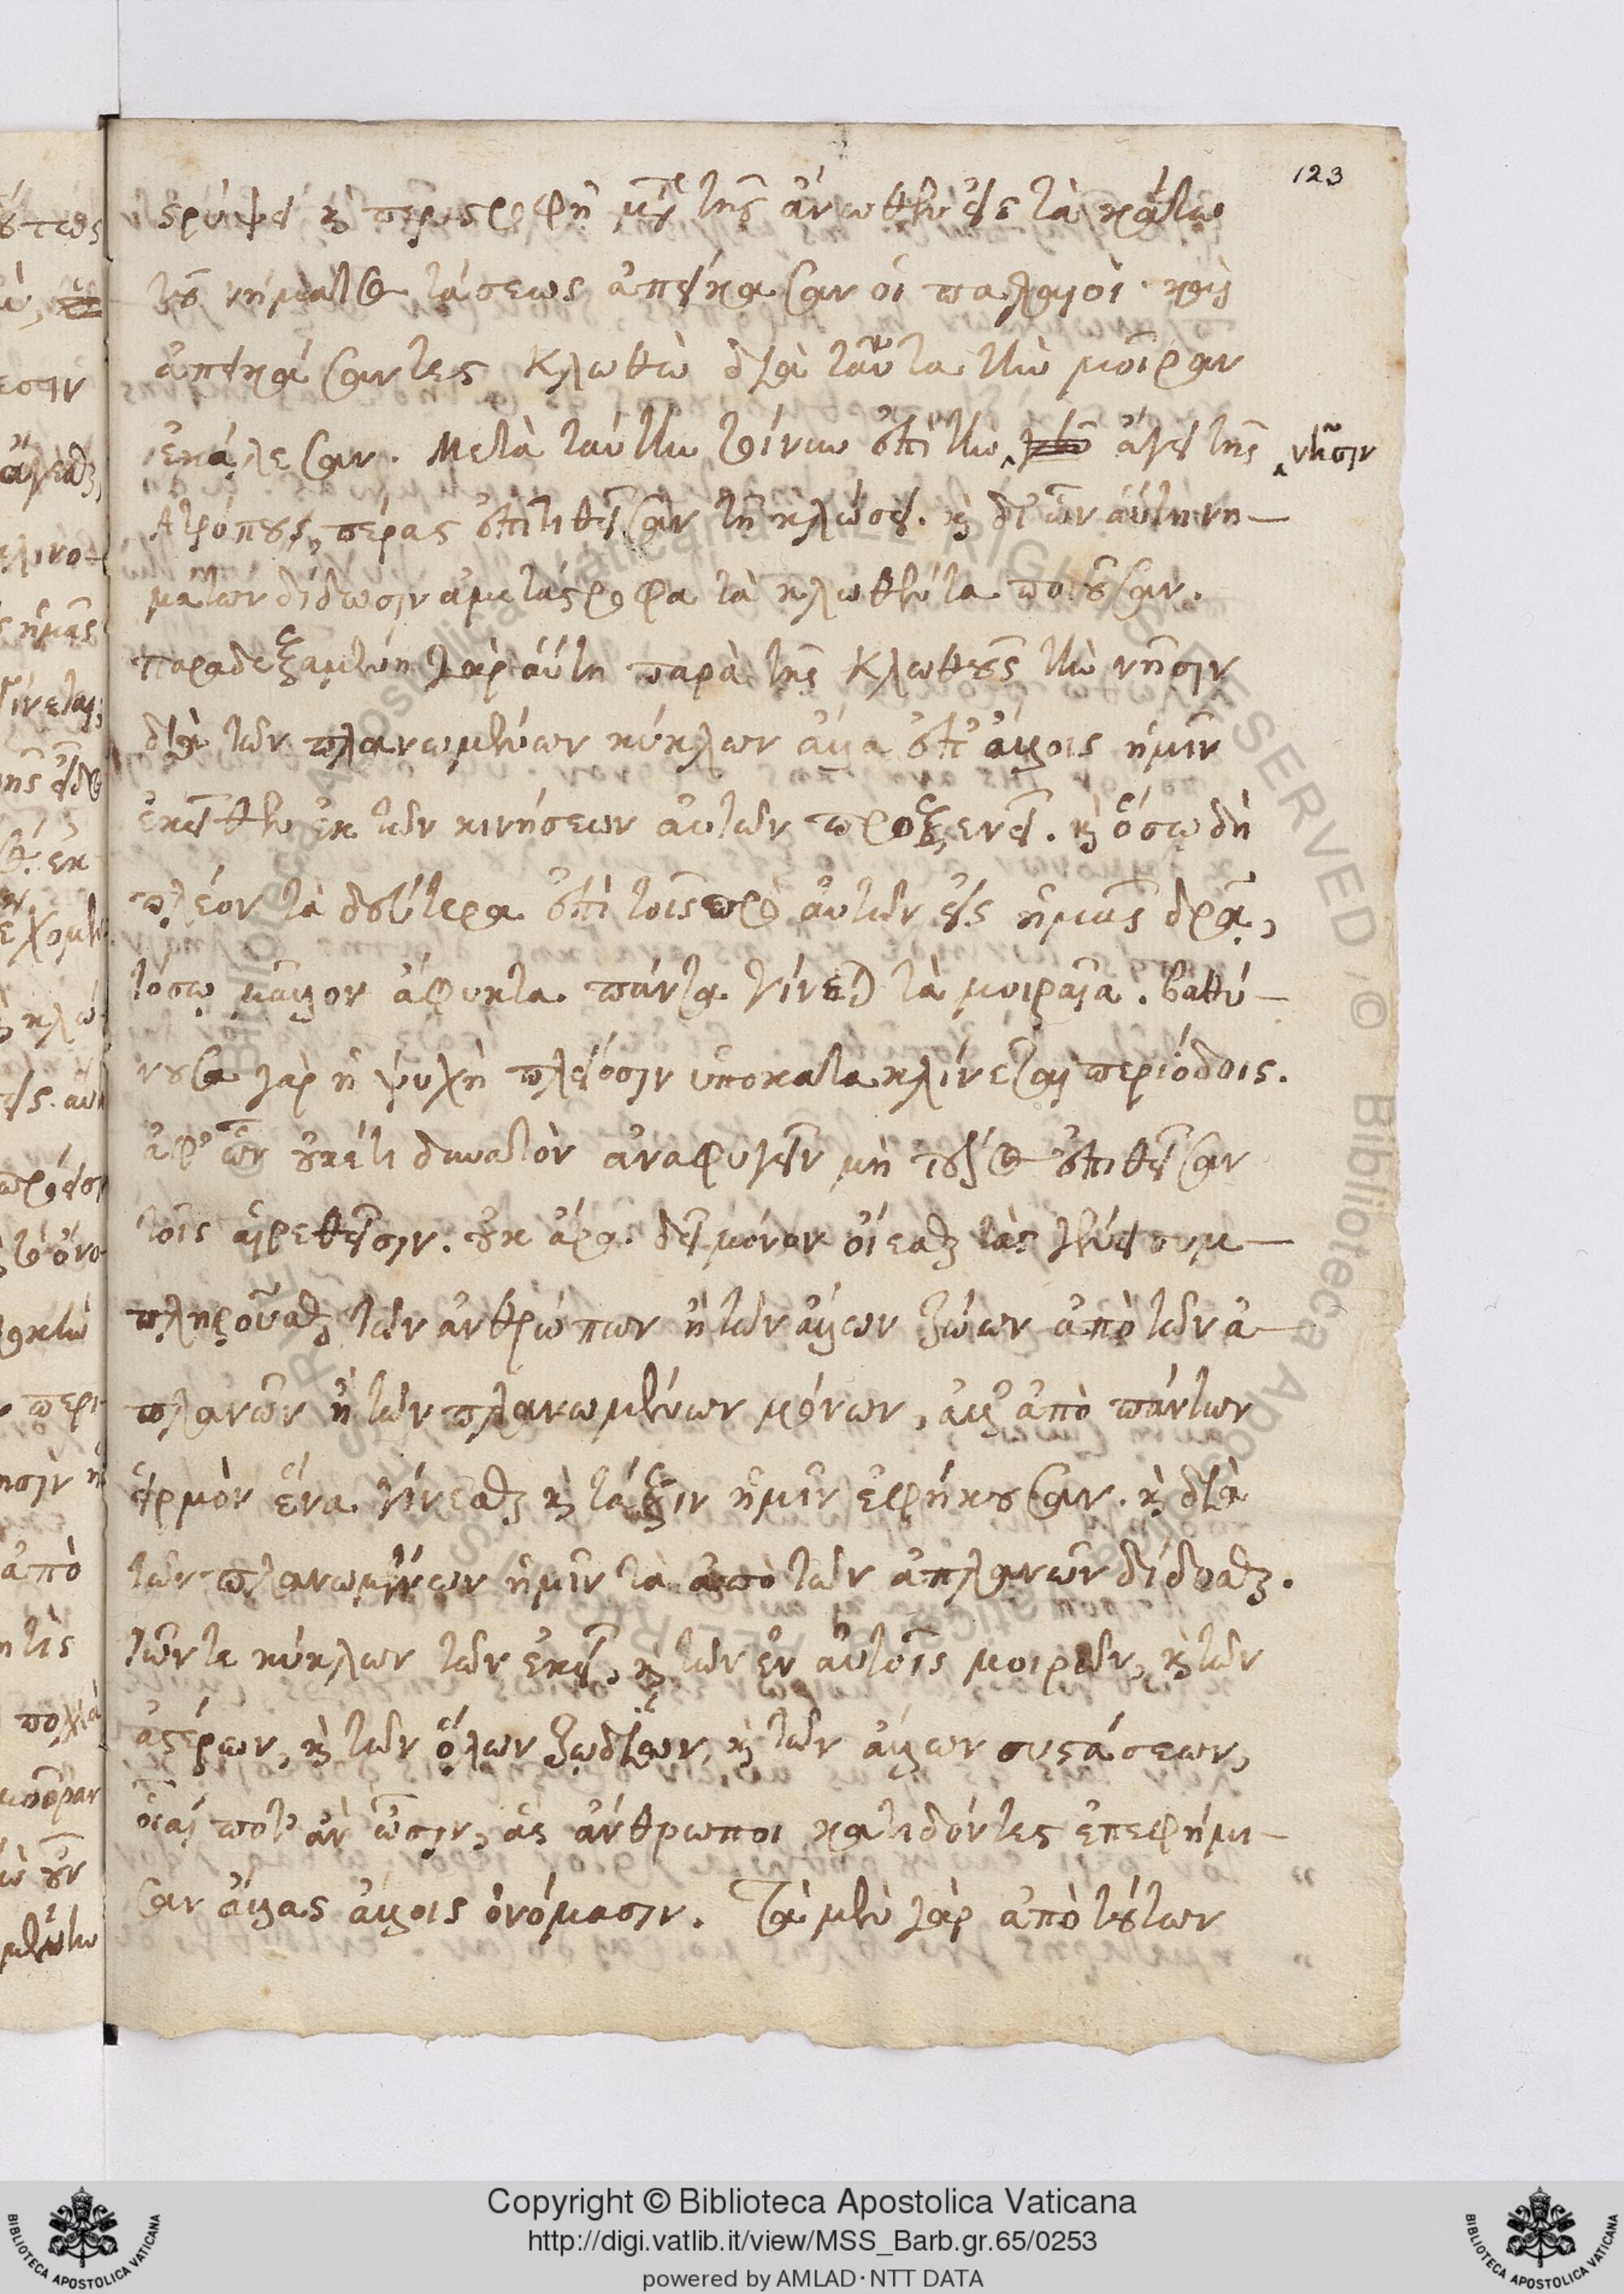 123
στρύψει καὶ περιστροφῇ μετὰ τῆς ἄνωθεν εἰς τὰ κάτω
τοῦ νήματος τάσεως ἀπείκασαν οἱ παλαιοί· καὶ
ἀπεικάσαντες Κλωθὼ διὰ ταῦτα τὴν μοῖραν
ἐκάλεσαν. Μετὰ ταύτην τοίνυν ἐπὶ τὴν νῆσιν ἄγει τῆς
Ἀτρόπου, πέρας ἐπιτιθεῖσαν τῇ κλώσει. καὶ δι' ὧν αὕτη νη-
μάτων δίδωσιν ἀμετάστροφα τὰ κλωσθέντα ποιοῦσαν.
παραδεξαμένη γὰρ αὕτη παρὰ τῆς Κλωθοῦς τὴν νῆσιν
διὰ τῶν πλανωμένων κύκλων ἄλλα ἐπ' ἄλλοις ἡμῖν
ἐκεῖθεν ἐκ τῶν κινήσεων αὐτῶν προξενεῖ. καὶ ὅσῳ δὴ
πλέον τὰ δεύτερα ἐπὶ τοῖς πρὸ αὐτῶν εἰς ἡμᾶς δρᾷ,
τόσῳ μᾶλλον ἄφυκτα πάντα γίνεται τὰ μοιραῖα. βαθύ-
νουσα γὰρ ἡ ψυχὴ πλείοσιν ὑποκατακλίνεται περιόδοις.
ἀφ' ὧν οὐκέτι δυνατὸν ἀναφυγεῖν μὴ τέλος ἐπιθεῖσαν
τοῖς αἱρεθεῖσιν. οὐκ ἄρα δεῖ μόνον οἴεσθαι τὰς γενέσει συμ-
πληροῦσθαι τῶν ἀνθρώπων ἢ τῶν ἄλλων ζώων ἀπὸ τῶν ἀ-
πλανῶν ἢ τῶν πλανωμένων μόνων, ἀλλ' ἀπὸ πάντων
εἱρμὸν ἕνα γίνεσθαι καὶ τάξιν ἡμῖν ἐφήκουσαν. καὶ διὰ
τῶν πλανωμένων ἡμῖν τὰ ἀπὸ τῶν ἀπλανῶν δίδοσθαι.
τῶν τε κύκλων τῶν ἐκεῖ, καὶ τῶν ἐν αὐτοῖς μοιρῶν, καὶ τῶν
ἀστέρων, καὶ τῶν ὅλων ζῳδίων, καὶ τῶν ἄλλων συστάσεων,
οἷαί ποτ' ἂν ὦσιν, ἃς ἄνθρωποι κατιδόντες ἐπεφήμι-
σαν ἄλλας ἄλλοις ὀνόμασιν. Τὰ μὲν γὰρ ἀπὸ τούτων
Copyright © Biblioteca Apostolica Vaticana
http://digi.vatlib.it/view/MSS_Barb.gr.65/0253
powered by AMLAD·NTT DATA